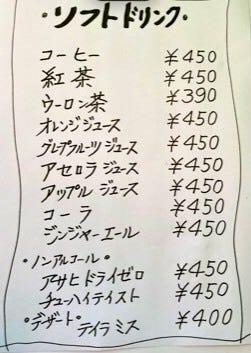 ・ソフトドリンク・
コーヒー ¥450
紅茶 ¥450
ウーロン茶 ¥390
オレンジジュース ¥450
グレープフルーツジュース ¥450
アセロラジュース ¥450
アップルジュース ¥450
コーラ ¥450
ジンジャーエール ¥450
・ノンアルコール・
アサヒドライゼロ ¥450
チューハイテイスト ¥450
°デザート°
テイラミス ¥400